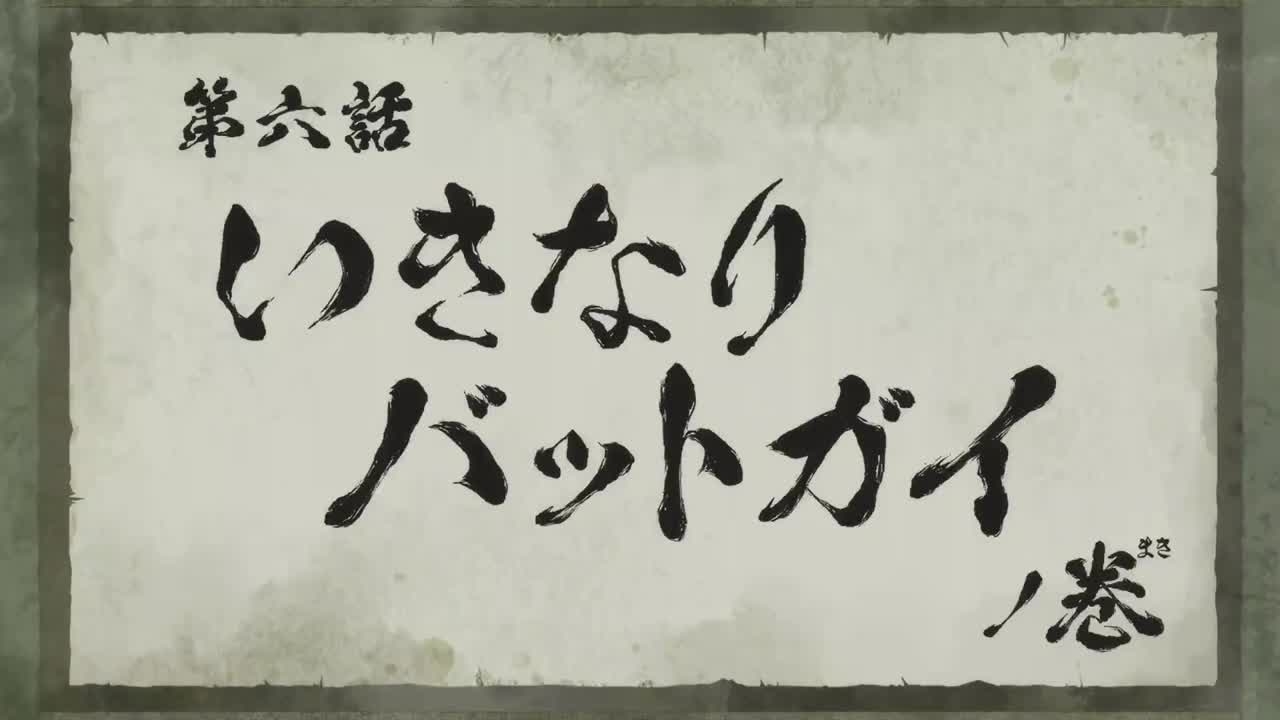 第六話
いきなり
バットガイ
ノ巻
まき